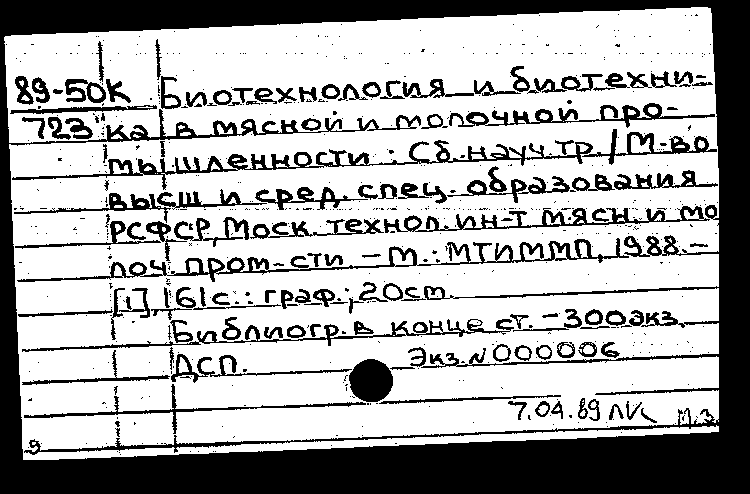 89-50К Биотехнология и биотехни-
723 ка в мясной и молочной про-
мышленности : Сб. науч. тр. / М-во
высш и сред. спец. образования
РСФСР, Моск. технол. ин-т мясн. и мо
лоч. пром-сти. – М. : МТИММП, 1988. –
[1], 161с. : граф. ; 20см.
Библиогр. в конце ст. – 300экз.
ДСП. Экз. N000006
7.04.89 ЛК М.З.
9